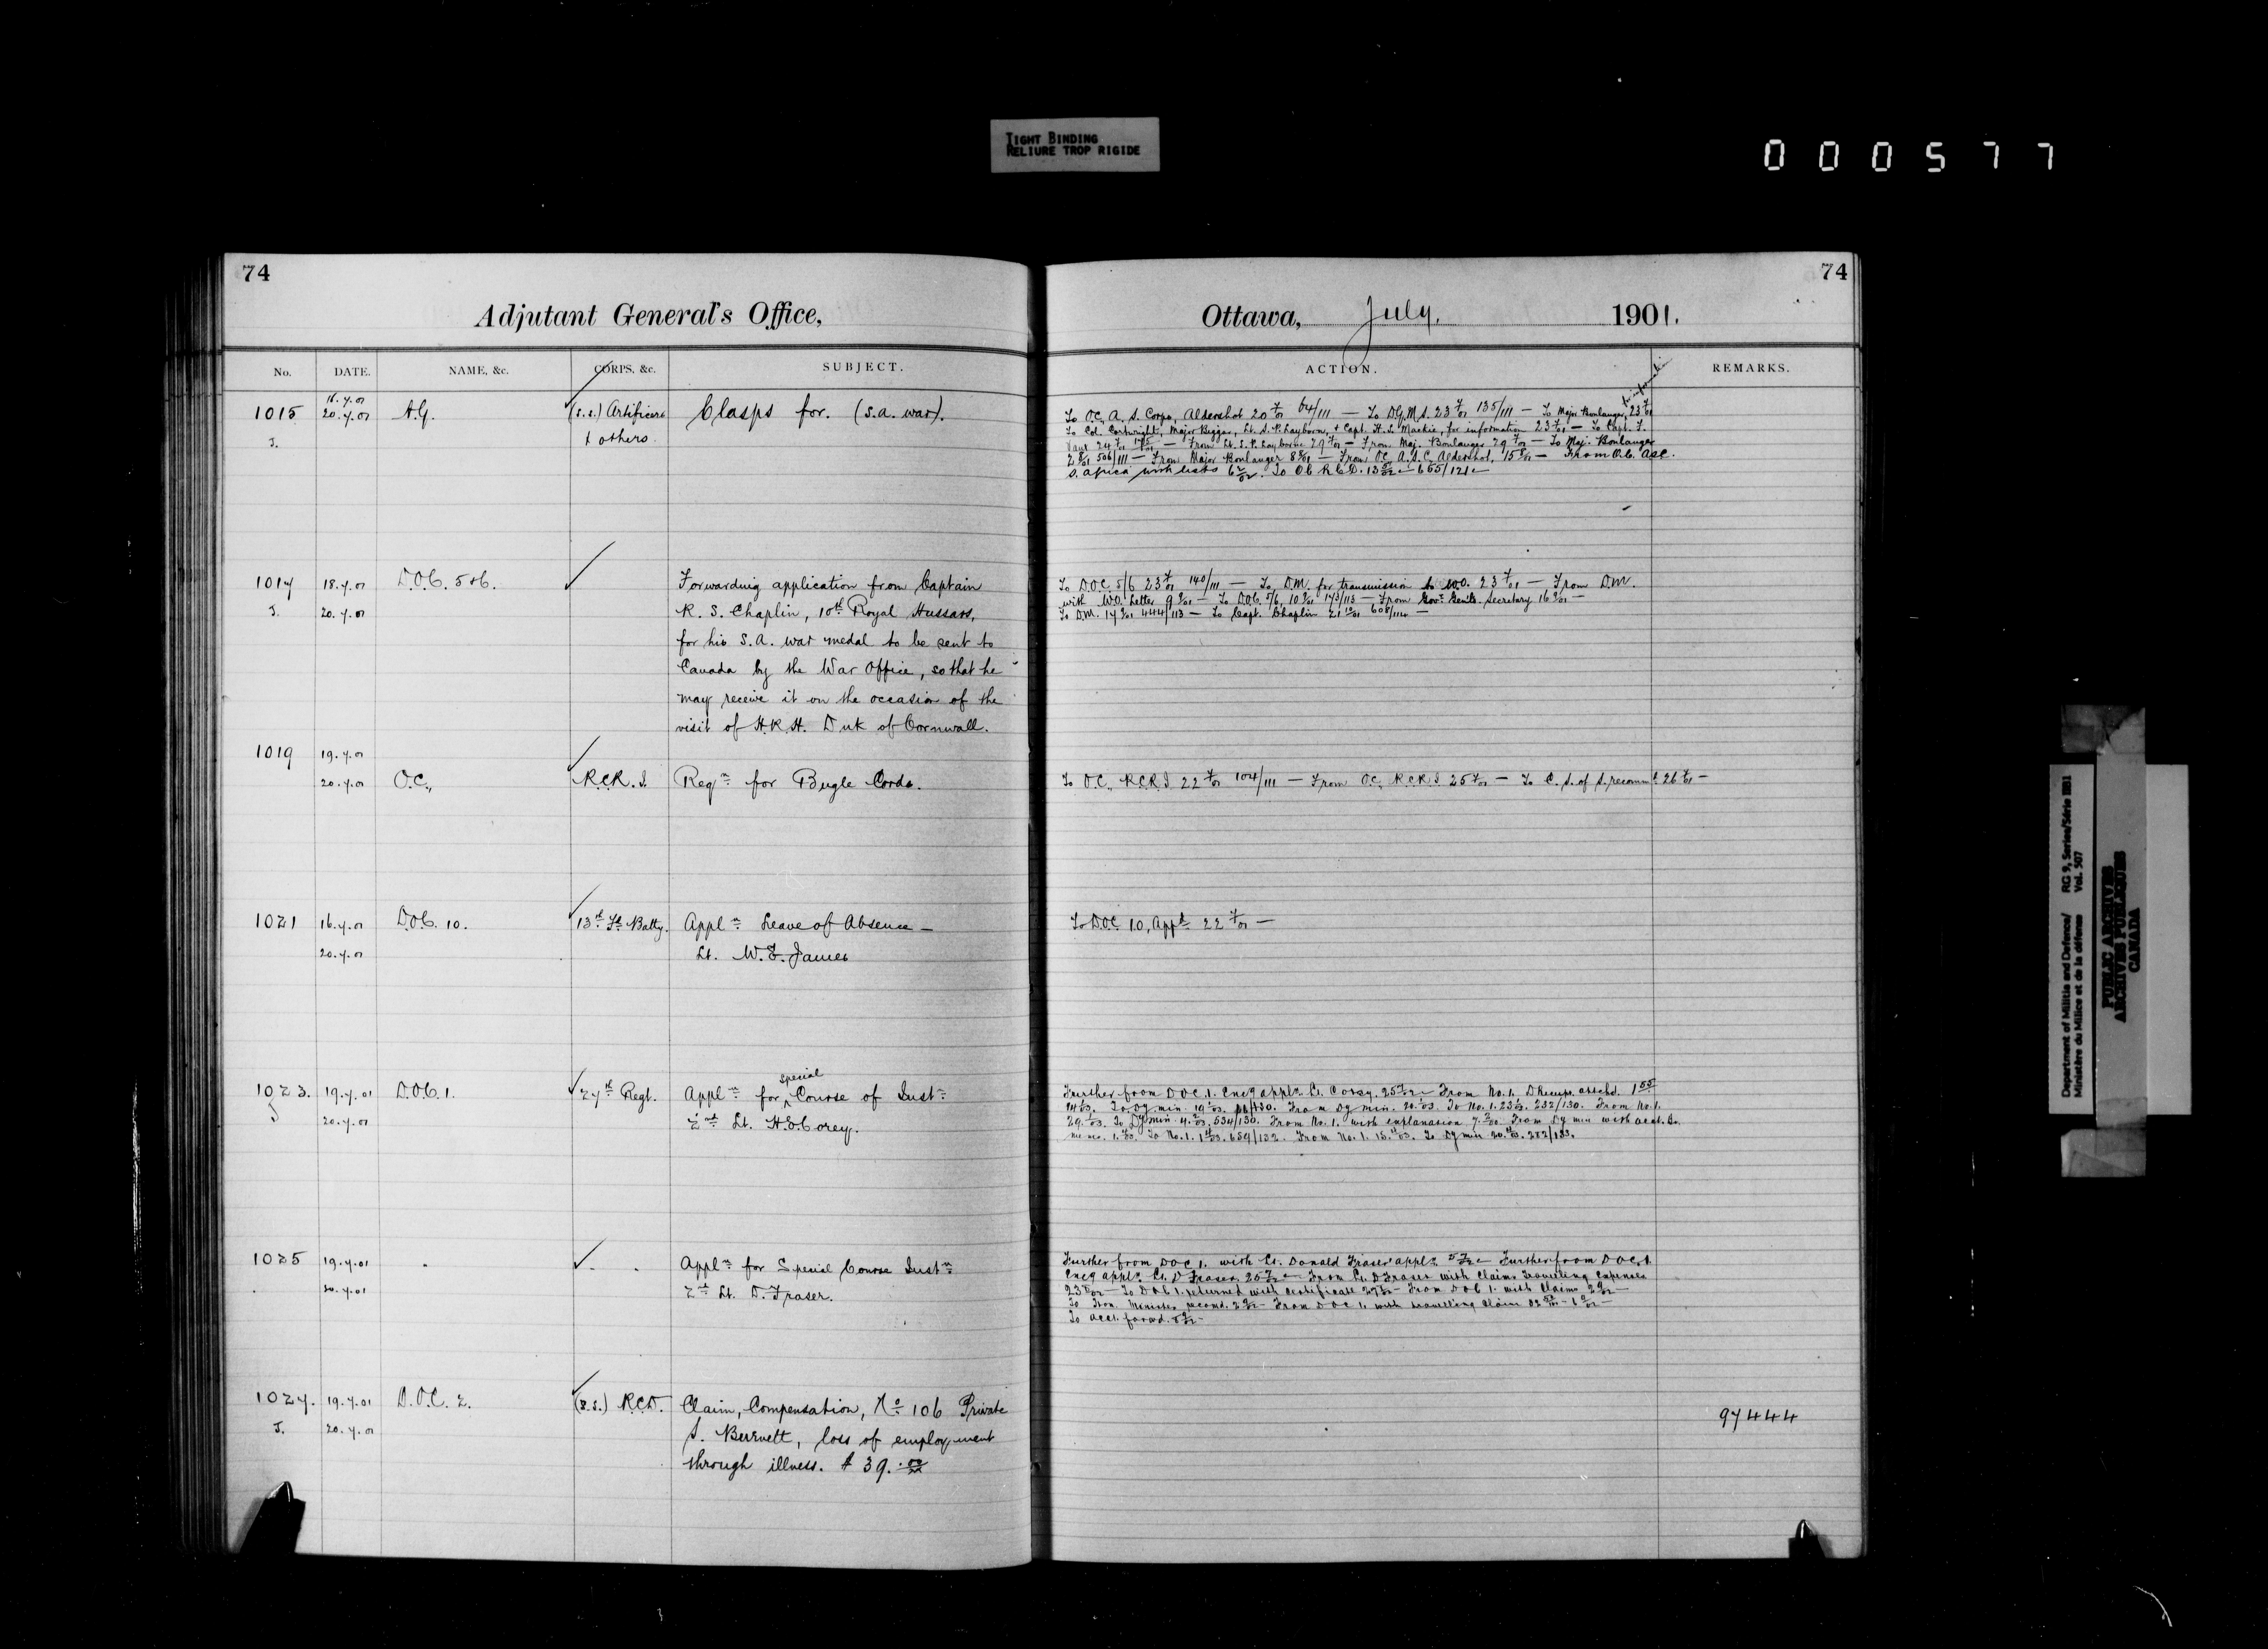 TIGHT BINDING
RELIURE TROP RIGIDE
000577
74
Adjutant General's Office,
No. DATE. NAME, &c. CORPS, &c. SUBJECT.
1015 16.7.01 A.G. (s.s.) Artificers Clasps for. (S.A. war).
J. 20.7.01 & others
1017 18.7.01 D.O.C. 5&6. Forwarding application from Captain
J. 20.7.01 R. S. Chaplin, 10th Royal Hussars,
for his S.A. war medal to be sent to
Canada by the War Office, so that he
may receive it on the occasion of the
visit of H.R.H. Duk of Cornwall.
1019 19.7.01
20.7.01 O.C., R.C.R.I. Reqn for Bugle Cords.
1021 16.7.01 D.O.C. 10. 13th Fd Batty. Appln Leave of Absence —
20.7.01 Lt. W.F. James
1023. 19.7.01 D.O.C. 1. 27th Regt. Appln for special Course of Instn
J 20.7.01 2nd Lt. H.E. Corey.
1025 19.7.01 " " " Appln for Special Course Instn
20.7.01 2nd Lt. D. Fraser.
1027. 19.7.01 D.O.C. 2. (s.s.) R.C.D. Claim, Compensation, No 106 Private
J. 20.7.01 S. Bennett, loss of employment
through illness. $39.00
74
Ottawa, July, 1901.
ACTION. REMARKS.
To OC, A. S. Corps, Aldershot 20 7/01 64/111 — To D.G.M.S. 23 7/01 135/111 — To Major Boulanger, 23 7/01
To Col. Cartwright, Major Biggar, Lt. S.P. Layborn, & Capt. H.S. Mackie, for information 23 7/01 — To Capt. F.
24 7/01 — From Lt. S.P. Layborn 29 7/01 — From Maj. Boulanger 29 7/01 — To Maj. Boulanger
2 8/01 506/111 — From Major Boulanger 8 8/01 — From OC A.S.C. Aldershot, 15 8/01 — From O.C. ASC.
S. Africa with lists To O.C. R.C.D. 655/121
To D.O.C. 5/6 23 7/01 140/111 — To D.M. for transmission to W.O. 23 7/01 — From D.M.
with W.O. Letter 9 9/01 — To D.O.C. 5/6, 10 9/01 173/113 — From Gov. Gen'ls. Secretary 16 9/01 —
To D.M. 17 9/01 444/113 — To Capt. Chaplin 21 10/01 608/114 —
To O.C., R.C.R.I 22 7/01 104/111 — From O.C. R.C.R.I 25 7/01 — To C. S. of S. recommd 26 7/01 —
To D.O.C 10, Appd 22 7/01 —
Further from DOC 1. Encg appln. Lt. Corey. 25 — From No.1.
To Dy min. From Dy min. To No. 1. 232/130. From No.1.
To Dy min. 534/130. From No. 1. with explanation From Dy min with
memo. To No.1. 654/132. From No. 1. To Dy min 282/133.
Further from DOC 1. with Lt. Donald Fraser appln. Further from DOC 1.
Encg appln. Lt. D Fraser. From Lt. D Fraser with Claim Travelling Expenses
To DOC 1. returned with certificate From DOC 1. with Claim
To Hon. Minister recomd. From DOC 1. with travelling claim
To acct. forwd.
97444
Department of Militia and Defence/ RG 9, Series/Série IIB1
Ministère du Milice et de la défense Vol. 507
PUBLIC ARCHIVES
ARCHIVES PUBLIQUES
CANADA